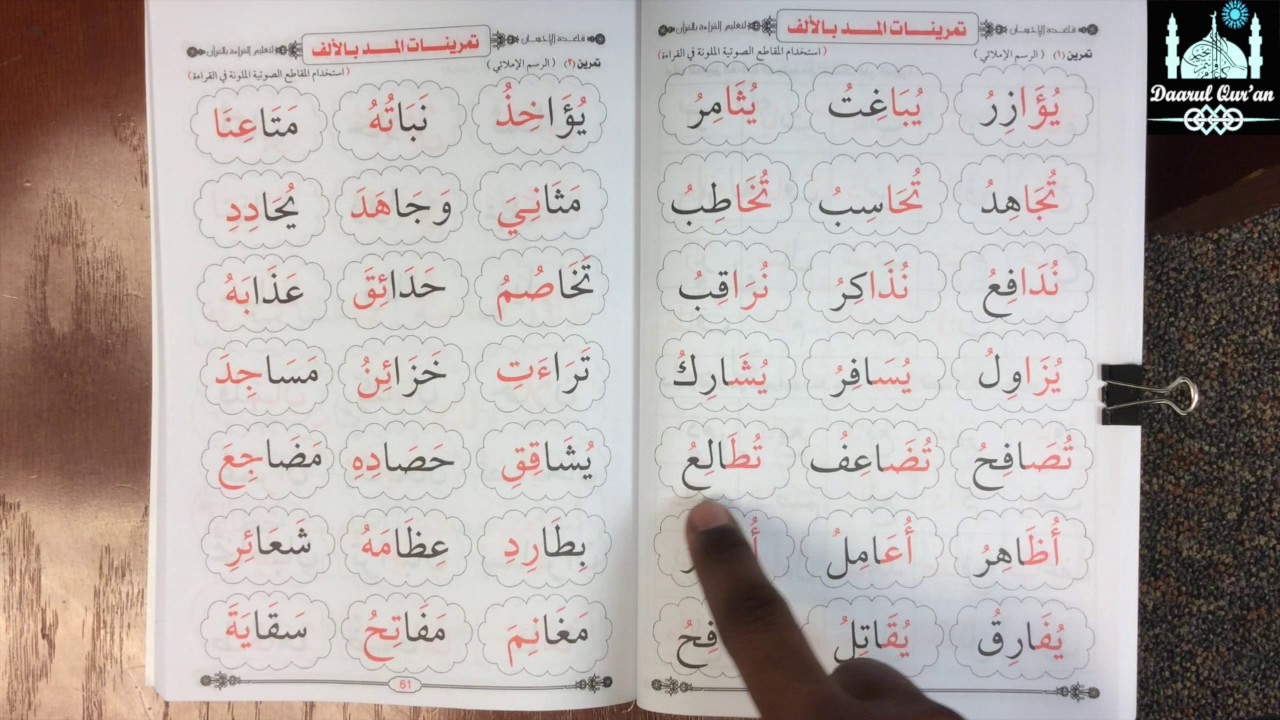 قاعدة الإحسان
تمرينات المد بالألف
لتعليم القراءة بالقرآن
تمرين (١) ( الرسم الإملائي ) (استخدام المقاطع الصوتية الملونة في القراءة)
يُؤَازِرُ يُبَاغِتُ يُثَامِرُ
تُجَاهِدُ تُحَاسِبُ تُخَاطِبُ
نُدَافِعُ نُذَاكِرُ نُرَاقِبُ
يُزَاوِلُ يُسَافِرُ يُشَارِكُ
تُصَافِحُ تُضَاعِفُ تُطَالِعُ
أُظَاهِرُ أُعَامِلُ
يُفَارِقُ يُقَاتِلُ
قاعدة الإحسان
تمرينات المد بالألف
لتعليم القراءة بالقرآن
تمرين (٢) ( الرسم الإملائي ) (استخدام المقاطع الصوتية الملونة في القراءة)
يُؤَاخِذُ نَبَاتُهُ مَتَاعِنَا
مَثَانِيَ وَجَاهَدَ يُحَادِدِ
تَخَاصُمُ حَدَائِقَ عَذَابَهُ
تَرَاءَتِ خَزَائِنُ مَسَاجِدَ
يُشَاقِقِ حَصَادِهِ مَضَاجِعَ
بِطَارِدِ عِظَامَهُ شَعَائِرِ
مَغَانِمَ مَفَاتِحُ سَقَايَةَ
61
Daarul Qur'an